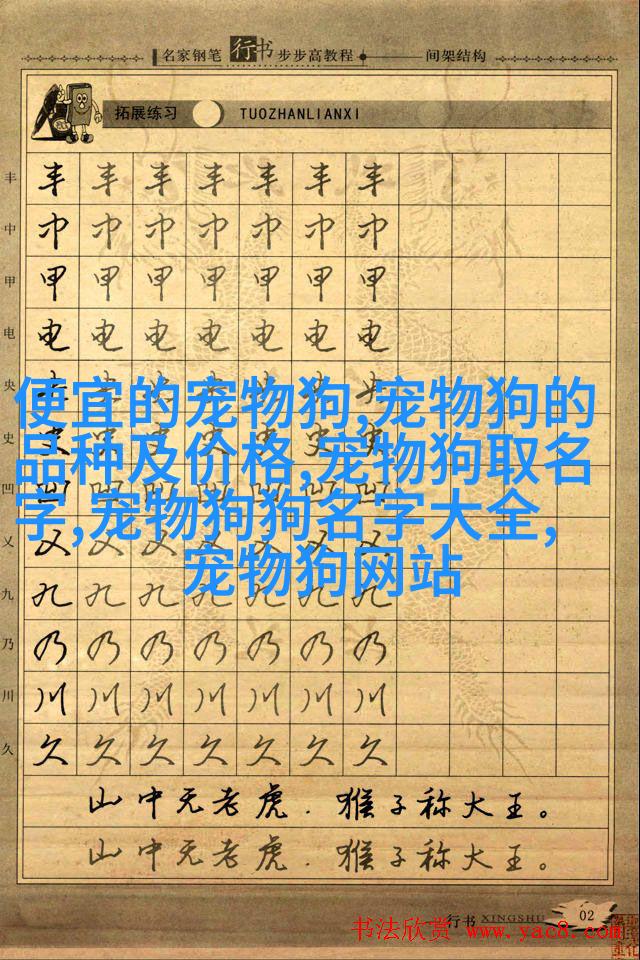 名家钢笔行书步步高教程 间架结构
拓展练习 TUOZHANLIANXI
丰 丰 丰 丰 丰 丰 丰 丰
中 中 中 中 中 中 中 中
甲 甲 甲 甲 甲 甲 甲 甲
电 电 电 电 电 电 电 电
央 央 央 央 央 央 央 央
便宜的宠物狗,宠物狗的
史 史 史 史 史 史 史 史
品种及价格,宠物狗取名
凹 凹 凹 凹 凹 凹 凹 凹
字,宠物狗狗名字大全,
乂 乂 乂 乂 乂 乂 乂 乂
宠物狗网站
九 九 九 九 九 九 九 九
乃 乃 乃 乃 乃 乃 乃 乃
川 川 川 川 川 川 川 川
久 久 久 久 久 久 久 久
山中无老虎.猴子称大王。
山中无老虎.猴子称大王。
行书 XINGSHU 02
书法欣赏 www.yac8.com